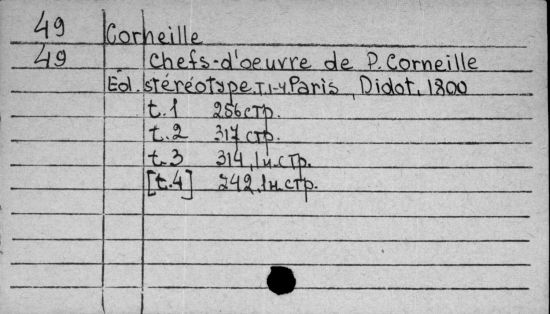 49 Corneille
49 Chefs-d'oeuvre de P. Corneille
Éd. stéréotype, T.1-4 Paris, Didot, 1800
t.1 256 стр.
t.2 317 стр.
t.3 314, 1н. стр.
[t.4] 242, 1н. стр.